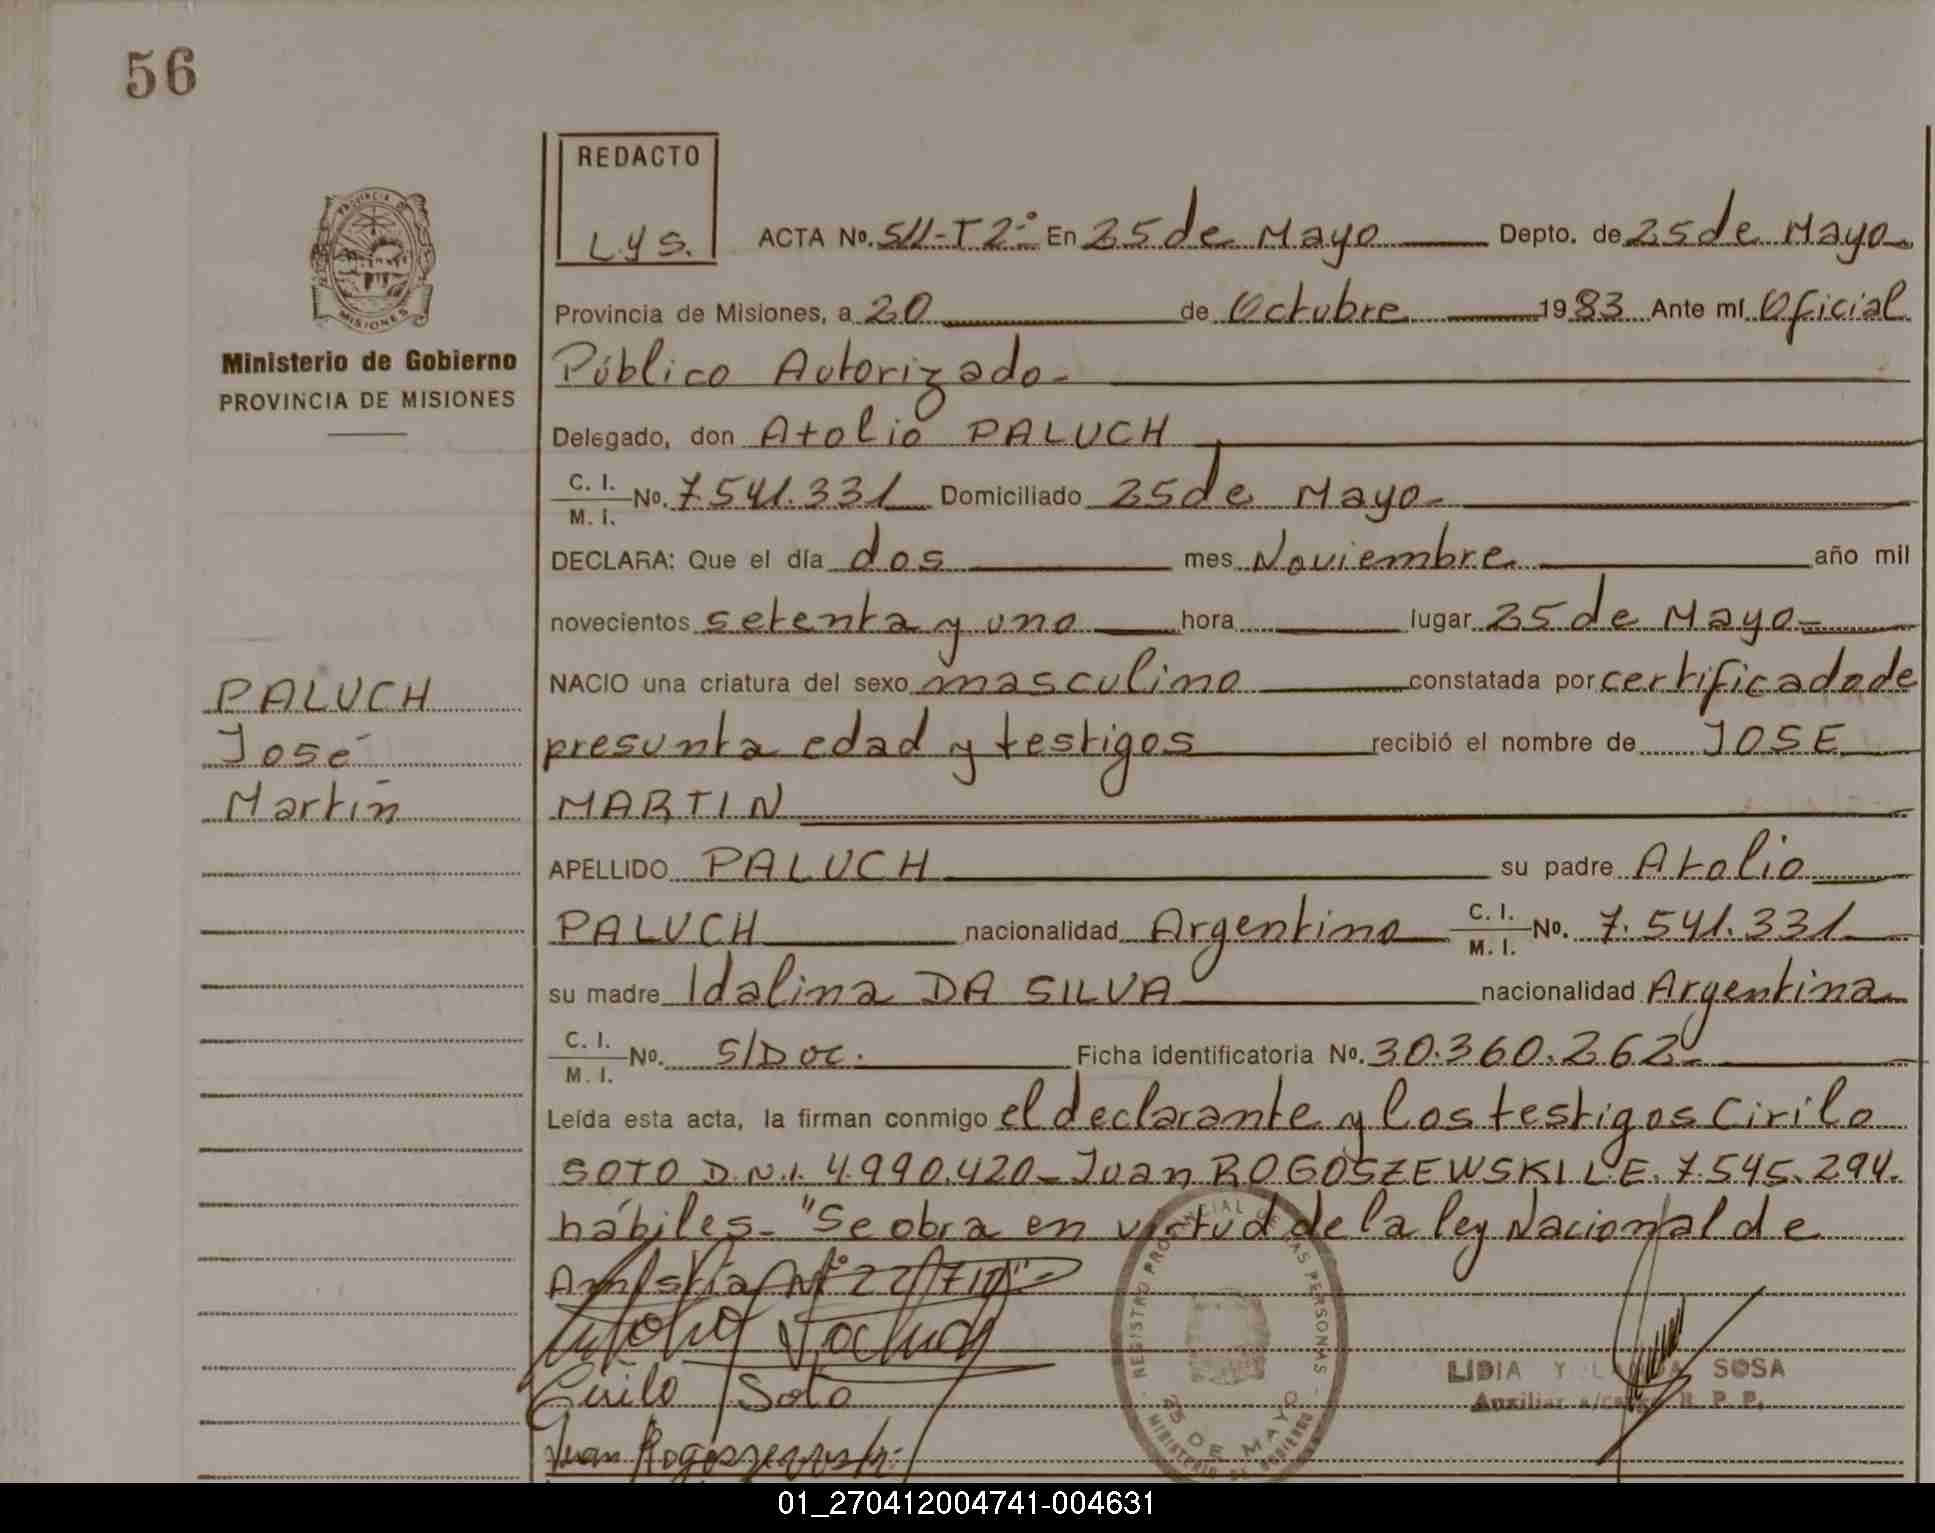 56
REDACTO
L.y S.
ACTA Nº. 511-T2º En 25 de Mayo Depto. de 25 de Mayo
Provincia de Misiones, a 20 de Octubre 1983 Ante mí Oficial
Público Autorizado-
Ministerio de Gobierno
PROVINCIA DE MISIONES
MISIONES
Delegado, don Atolio PALUCH
C. I.
M. I. Nº. 7.541.331 Domiciliado 25 de Mayo-
DECLARA: Que el día dos mes Noviembre año mil
novecientos setenta y uno hora lugar 25 de Mayo-
NACIO una criatura del sexo masculino constatada por certificado de
presunta edad y testigos recibió el nombre de JOSE
MARTIN
PALUCH
José
Martín
APELLIDO PALUCH su padre Atolio
PALUCH nacionalidad Argentino C. I. M. I. Nº. 7.541.331
su madre Idalina DA SILVA nacionalidad Argentina
C. I.
M. I. Nº. S/Doc. Ficha identificatoria Nº. 30.360.262-
Leída esta acta, la firman conmigo el declarante y los testigos Cirilo
SOTO D.N.I. 4.990.420-Juan ROGOSZEWSKI L.E. 7.545.294.
hábiles- "Se obra en virtud de la ley Nacional de
Amistía Nº 22/
Cirilo Soto
Juan Rogoszewski
REGISTRO PROVINCIAL DE LAS PERSONAS
25 DE MAYO
MINISTERIO DE GOBIERNO
LIDIA Y SOSA
Auxiliar R. P. P.
01_270412004741-004631